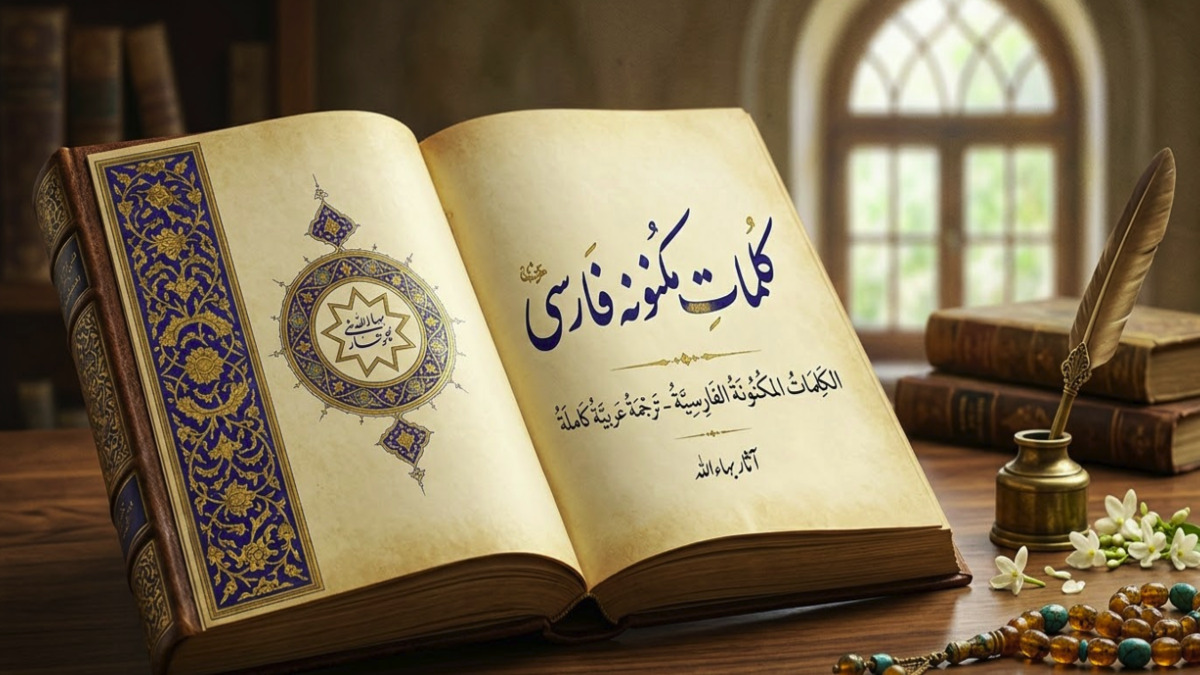 كلماتِ مكنُونه فَارسی
الكَلِمَاتُ المَكْنُونَةُ الفَارِسِيَّةُ - تَرْجَمَةُ عَرَبِيَّةُ كَامِلَةُ
آثار بهاءالله
بهاءالله